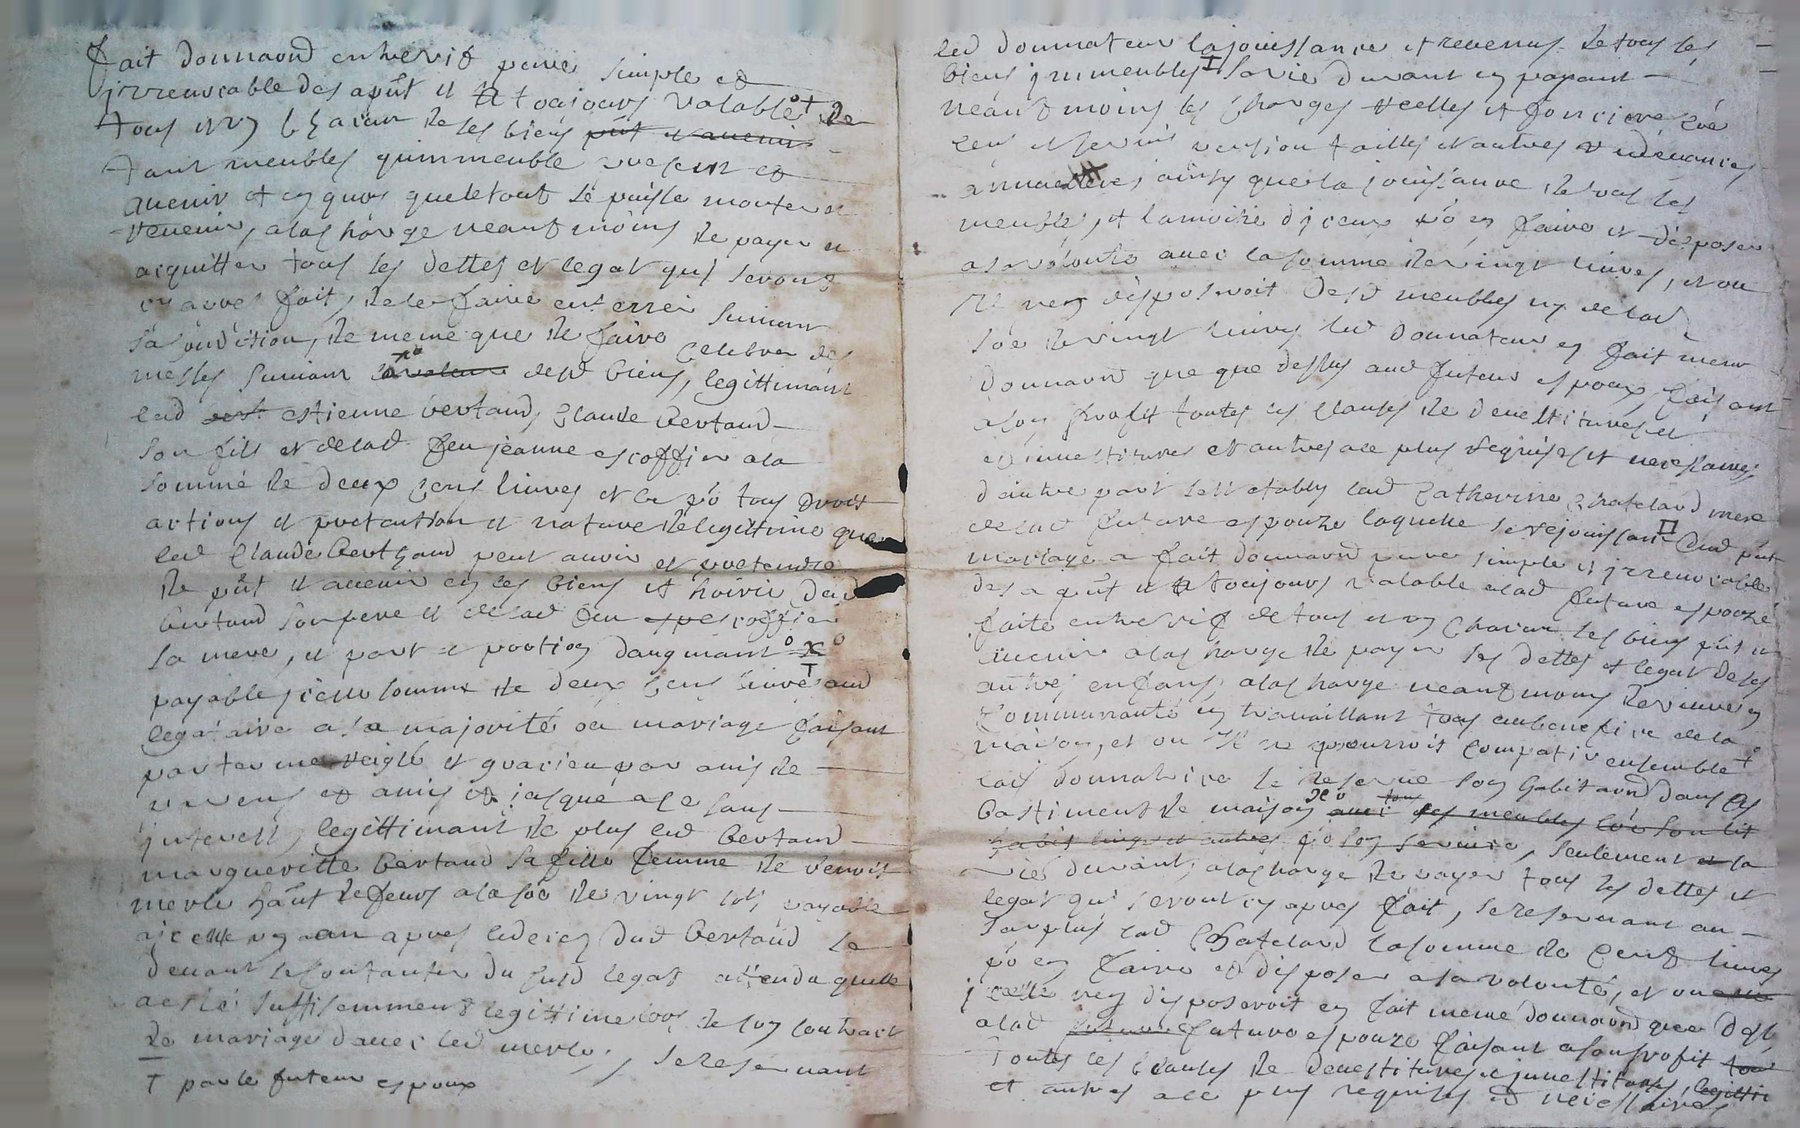 fait donnaõn entrevif pure simple et
irrevocable des apñt et a toujours valable de
tous et un chacun de ses biens pñt et avenir
tant meubles quimmeuble present et
avenir et en quoy que le tout se puisse monter et
revenir, a la charge neantmoins de payer et
acquitter tous les dettes et legat quj seront
cy apres fait, de le faire enterrer suivant
sa condition, de meme que de faire celebrer des
messes suivant la valeur desd biens, legittimant
led estienne bertaud, Claude bertaud
son fils et delad feu jeanne escoffier a la
somme de deux cens livres et ce põ tous droit
actions et pretention et nature de legittime que
led Claude Berthaud peut avoir et pretendre
de pñt et avenir en les biens et hoirie dud
bertaud son pere et delad feu escoffier
sa mere, et part et portion daugmant x
payable icelle somme de deux cens livres aud
legataire a sa majorité ou mariage faisant
par terme reiglé et gracieu par avis de
parens et amis et jusque a ce sans
interest, legittimant de plus led bertaud
margueritte bertaud sa fille femme de benoit
merle haut de feurs a la sõe de vingt sols payable
a icelle un an apres le deces dud bertaud se
devant se contanter du susd legat attendu quelle
a esté suffisemment legittimé lors de son contract
de mariage davec led merle, se reservant
T par le futeur espoux
led donnateur la jouissance et revenus de tous les
biens jmmeubles T sa vie durant en payant
neantmoins les charges reelles et fonciere sõe
cens et servis pension tailles et autres redevances
annuelles, ainsy que la jouissance de tous les
meubles, et la moitié diceux põ en faire et disposer
a sa volonté avec la somme de vingt livres, et ou
Il nen disposeroit desd meubles ny de lad
sõe de vingt livres led donnateur en fait meme
donnaõn que que dessus aud futeur espoux faisant
a son profit toutes les clauses de devestitures et
dinvestitures et autres a ce plus requises et necessaires
dautre part sest etably lad Catherine chateland mere
delad future espouze laquelle se rejouissant dud pñt
mariage a fait donnaõn pure simple et irrevocable
des a pñt et a toujours valable a lad future espouze
faite entrevif de tous et un chacun ses biens pñt et
avenir a la charge de payer ses dettes et legat de ses
autres enfans, a la charge neantmoins de vivre en
communauté en travaillant tous au benefice de la
maison, et ou Il ne pourroit compatir ensemble
lad donnatrice se reserve son habitaõn dans les
bastiment de maison avec ses meubles sõe son lit
habit linge et autres põ son service, seulement et sa
vie durant, a la charge de payer tous les dettes et
legat qui seront cy apres fait, se reservant au
surplus lad Chateland la somme de cent livres
põ en faire et disposer a sa volonté, et ou
icelle nen disposeroit en fait meme donnaõn que dess.
a lad future espouze faisant a son profit tou
toutes les clauses de devestitures et jnvestitures, legitti
et autres a ce plus requises et necessaires